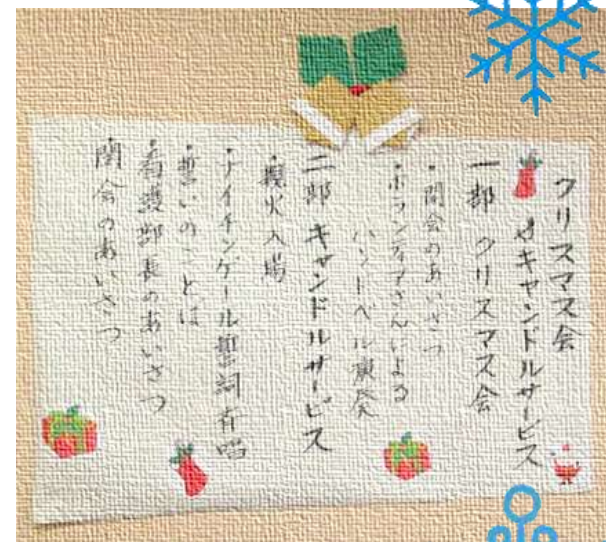 クリスマス会
&キャンドルサービス
一部 クリスマス会
・開会のあいさつ
・ボランティアさんによる
ハンドベル演奏
二部 キャンドルサービス
・親火入場
・ナイチンゲール誓詞斉唱
・誓いのことば
・看護部長のあいさつ
閉会のあいさつ